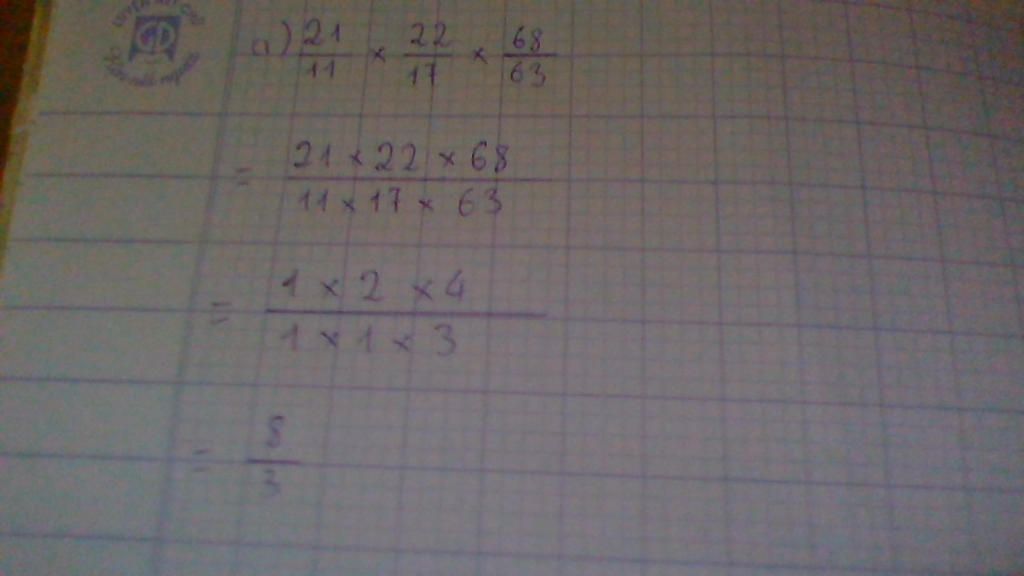 a) 21/11 × 22/17 × 68/63
= 21 × 22 × 68 / 11 × 17 × 63
= 1 × 2 × 4 / 1 × 1 × 3
= 8/3